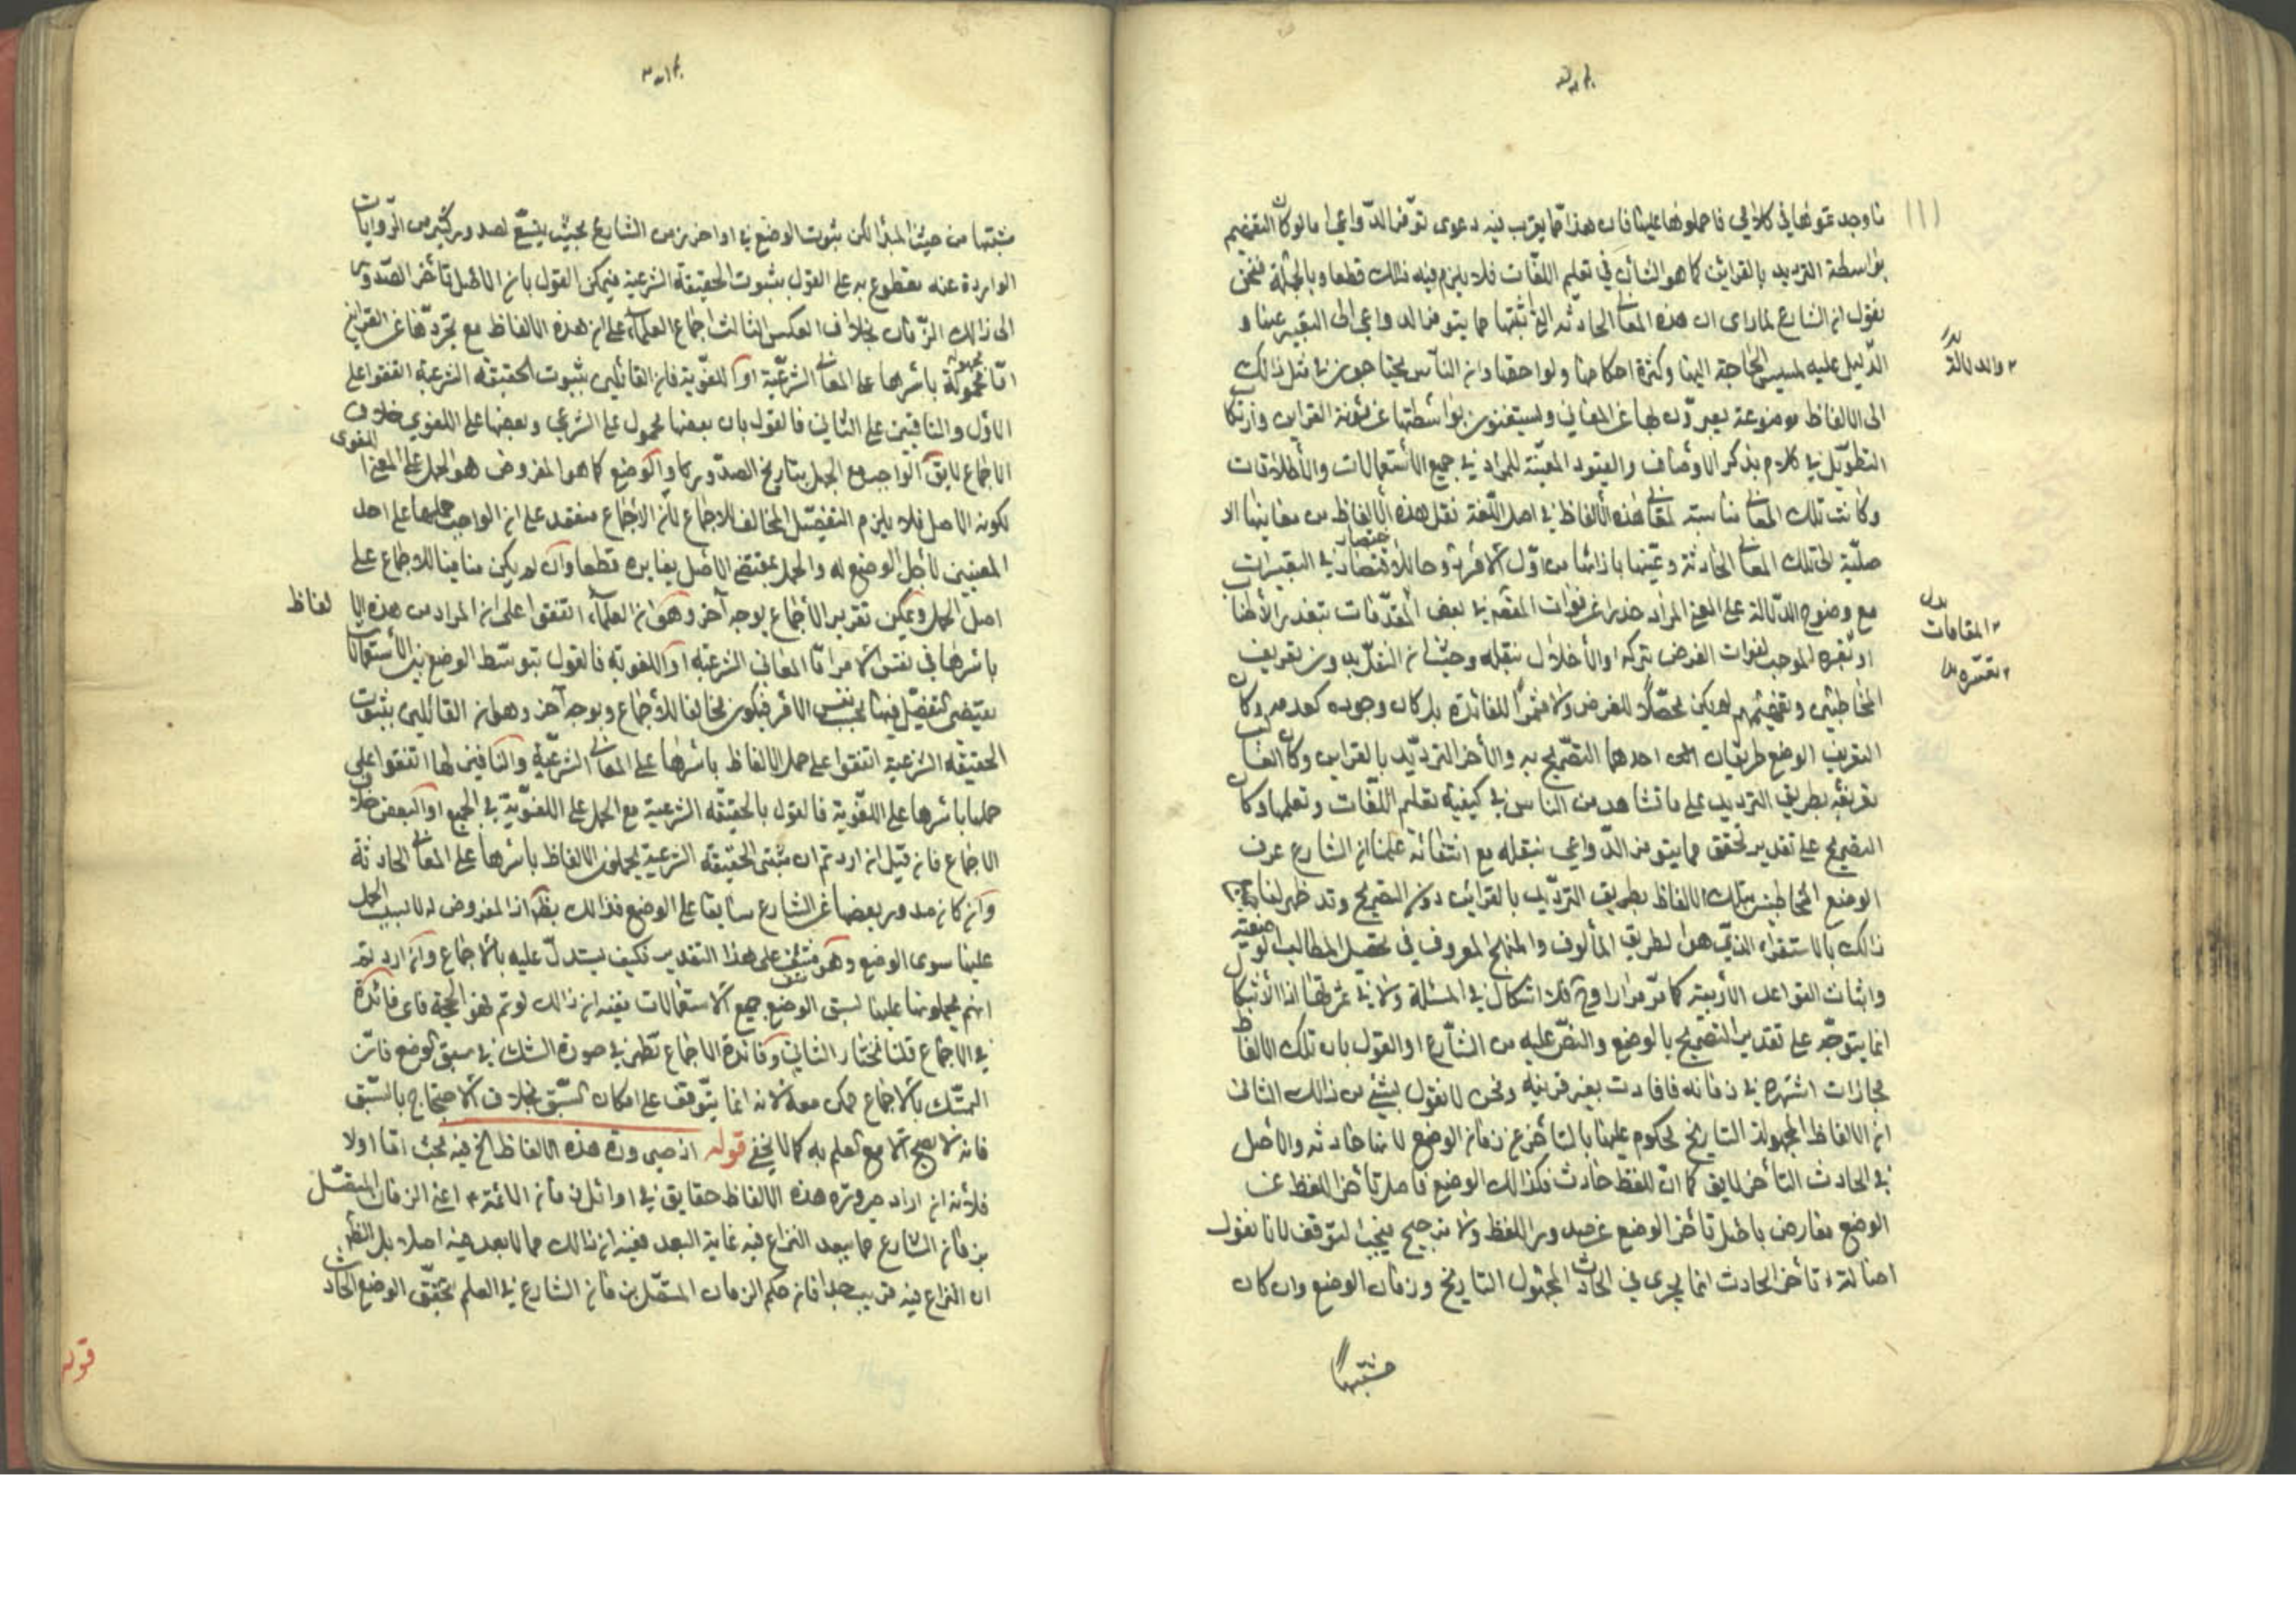 ما وجدتموها في كلامي فاحملوها عليها فان هذا مما يقرب فيه دعوى توفر الدواعي اما لو كان التفهيم
بواسطة الترديد بالقرائن كما هو الشأن في تعليم اللغات فلا يلزم فيه ذلك قطعا وبالجملة فنحن
نقول ان الشارع لما راى ان هذه المعاني الحادثة التي اثبتها مما يتوفر الدواعي الى التعبير عنها و
الدليل عليه لمسيس الحاجة اليها وكثرة احكامها ولواحقها وان الناس يحتاجون في مثل ذلك
والدلالة
الى الالفاظ موضوعة يعبرون بها عن المعاني ويستغنون بواسطتها عن مؤنة القراين وارتكاب
التطويل في كلام بذكر الاوصاف والقيود المعينة للمراد في جميع الاستعمالات والاطلاقات
وكانت تلك المعاني مناسبة لمعاني هذه الالفاظ في اصل اللغة نقل هذه الالفاظ من معانيها الا
صلية الى تلك المعاني الحادثة وعينها بازائها من اول الامر في التعبيرات
مع وضوح الدلالة على المعنى المراد حذرا عن فوات المقصد في بعض المقدمات بتعذر الاطناب
بدل
المقامات
او تعسره الموجب لفوات الغرض بتركه او الاخلال بنقله وحيث ان النقل بدون تعريف
تعسره
المخاطبين وتفهيمهم لم يكن محصلا للغرض ولا مثمرا للفائدة بل كان وجوده كعدمه وكان
التعريف الوضع طريقان احدهما التصريح به والاخر الترديد بالقراين وكان الغالب
تعريفه بطريق الترديد على ما نشاهد من الناس في كيفية تعليم اللغات وتعلمها وكان
التصريح على تقدير تحققه مما يتوفر الدواعي بنقله مع انتفائه علمنا ان الشارع عرف
الوضع المخاطبين بتلك الالفاظ بطريق الترديد بالقرائن دون التصريح وقد ظهر لنا
ذلك بالاستقراء الذي هو الطريق المألوف والمنهج المعروف في تحصيل المطالب
واثبات القواعد الادبية كما مر مرارا وح فلا اشكال في المسئلة ولا في اذ الاشكال
انما يتوجه على تقدير التصريح بالوضع والنص عليه من الشارع او القول بان تلك الالفاظ
مجازات اشتهرت في زمانه فافادت بغير قرينة ونحن لا نقول بشيء من ذلك الثاني
ان الالفاظ المجهولة التاريخ محكوم عليها بالتأخر عن زمان الوضع لانها حادثة والاصل
في الحادث التأخر لا يق كما ان اللفظ حادث فكذلك الوضع فاصل تأخر اللفظ عن
الوضع معارض باصل تأخر الوضع عن صدور اللفظ ولا ترجيح فيجب التوقف لانا نقول
اصالة تأخر الحادث انما يجري في الحادث المجهول التاريخ وزمان الوضع وان كان
مشتبها
مشتبها من حيث المبدأ لكن ثبوت الوضع في اواخر زمن الشارع بحيث يتسع لصدور كثير من الروايات
الواردة عنه مقطوع به على القول بثبوت الحقيقة الشرعية فيمكن القول بان الاصل تأخر الصدور
الى ذلك الزمان بخلاف العكس الثالث اجماع العلماء على ان هذه الالفاظ مع تجردها عن القراين
اما محمولة باسرها على المعاني الشرعية او اللغوية فان القائلين بثبوت الحقيقة الشرعية اتفقوا على
الاول والنافين على الثاني فالقول بان بعضها محمول على الشرعي وبعضها على اللغوي خلاف
الاجماع لا يق الواجب مع الجهل بتاريخ الصدور كما والوضع كما هو المفروض هو الحمل على المعنى اللغوي
لكونه الاصل فلا يلزم التفصيل المخالف للاجماع لان الاجماع منعقد على ان الواجب حملها على احد
المعنيين لاجل الوضع له والحمل بمقتضى الاصل يغايره قطعا وان لم يكن منافيا للاجماع على
اصل الحمل ويمكن تقرير الاجماع بوجه آخر وهو ان العلماء اتفقوا على ان المراد من هذه الا لفاظ
باسرها في نفس الامر اما المعاني الشرعية او اللغوية فالقول بتوسط الوضع بين الاستعمالات
يقتضي التفصيل فيها بحسب نفس الامر فيكون مخالفا للاجماع وبوجه آخر وهو ان القائلين بثبوت
الحقيقة الشرعية اتفقوا على حمل الالفاظ باسرها على المعاني الشرعية والنافين لها اتفقوا على
حملها باسرها على اللغوية فالقول بالحقيقة الشرعية مع الحمل على اللغوية في الجميع او البعض خلاف
الاجماع فان قيل ان اردتم ان مثبتي الحقيقة الشرعية يحملون الالفاظ باسرها على المعاني الحادثة
وان كان صدور بعضها عن الشارع سابقا على الوضع فذلك بط اذ المفروض ان لا سبب للحمل
عليها سوى الوضع وهو منتف على هذا التقدير فكيف يستدل عليه بالاجماع وان اردتم
انهم يحملونها عليها لسبق الوضع جميع الاستعمالات ففيه ان ذلك لو تم لهو الحجة فاى فائدة
في الاجماع قلنا نختار الثاني وفائدة الاجماع تظهر في صورة الشك في سبق الوضع فان
التمسك بالاجماع ممكن معه لانه انما يتوقف على امكان السبق بخلاف الاحتجاج بالسبق
فانه لا يصح الا مع العلم به كما لا يخفى قوله اذ صيرورة هذه الالفاظ الخ فيه بحث اما اولا
فلانه ان اراد صيرورة هذه الالفاظ حقايق في اوائل زمان الائمة ع اعني الزمان المتصل
بزمان الشارع مما يبعد النزاع فيه غاية البعد ففيه ان ذلك مما لا بعد فيه اصلا بل الظ
ان النزاع فيه قريب جدا فان حكم الزمان المتصل بزمان الشارع في العلم بتحقق الوضع الحادث
قوله